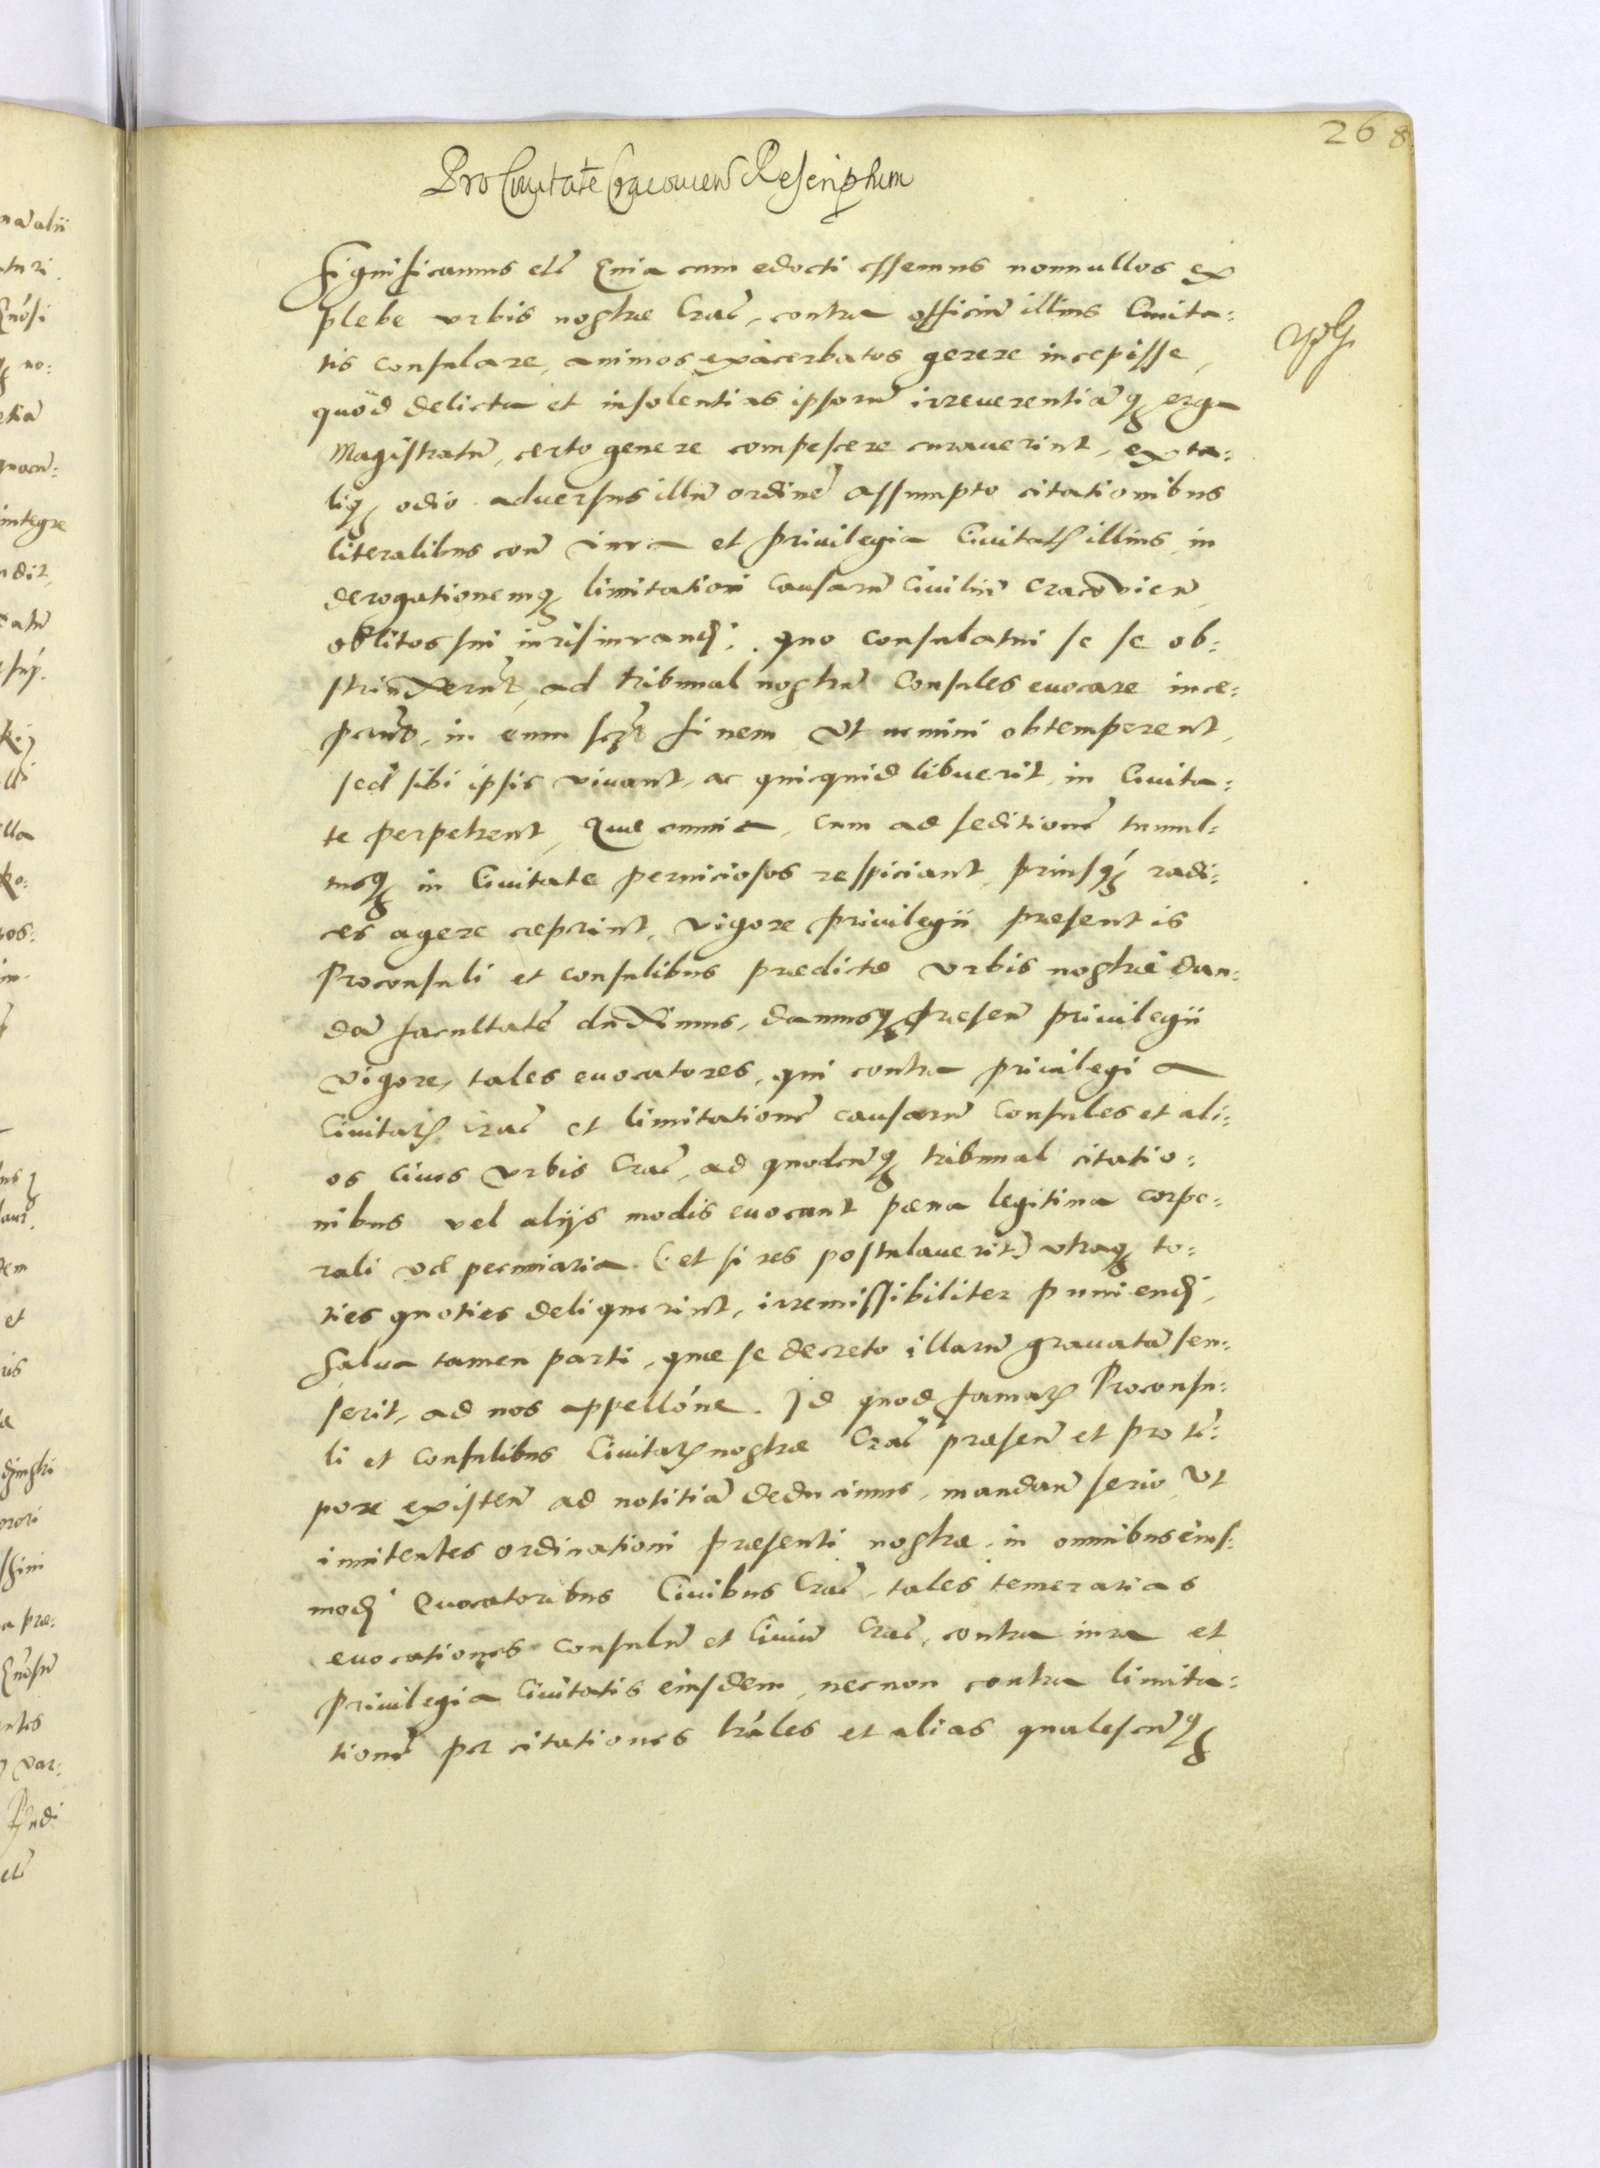 268
Pro Ciuitatē Cracouieñ Rescriptum
Significamus etc̄ Quia cum edocti essemus nonnullos ex
plebe vrbis nostrae Crac̄, contra officiū illius Ciuita:
tis consulare, animos exacerbatos gerere incepisse,
quod delicta et insolentias ipsorū irreuerentiāq erga
Magistratū, certo genere compescere curauerint, ex ta:
liq odio aduersus illū ordinē assumpto citationibus
literalibus con̄ iura et priuilegia Ciuitatis illius in
derogationemq limitationi causarū Ciuiliū Cracovien̄,
oblitos sui iurisiurandi, quo consulatui se se ob:
strinxerūt, ad tribunal nostrū Consules euocare ince:
perūt, in eum finem vt nemini obtemperent,
sed sibi ipsis viuant, ac quicquid libuerit in Ciuita:
te perpetrent, Quae omnia, cum ad seditionē tumul:
tusq in Ciuitate perniciosos respiciant, priusq́ radi:
ces agere ceperint, vigore priuilegii praesentis
Proconsuli et consulibus praedictae vrbis nostrae dan:
dā facultatē duximus, damusq praesen̄ priuilegii
vigore, tales euocatores, qui contra priuilegia
Ciuitatis Crac̄ et limitationē causarū Consules et ali:
os Ciues vrbis Crac̄, ad quodcūq tribunal citatio:
nibus vel alijs modis euocant paena legitima corpo:
rali vel pecuniaria (: et si res postulauerit) vtraq to:
ties quoties deliquerint, irremissibiliter puniendi,
salua tamen parti, quae se decreto illarū grauatā sen:
serit, ad nos appellóne. Id quod famatis Proconsu:
li et Consulibus Ciuitatis nostrae Crac̄ praesen̄ et pro tē:
pore existen̄ ad notitiā deducimus, mandan̄ serio, vt
innitentes ordinationi praesenti nostrae, in omnibus eius:
modi Euocatoribus Ciuibus Crac̄, tales temerarias
euocationes consulū et Ciuiū Crac̄, contra iura et
priuilegia Ciuitatis eiusdem, necnon contra limita:
tionē per citationes lráles et alias qualescūq